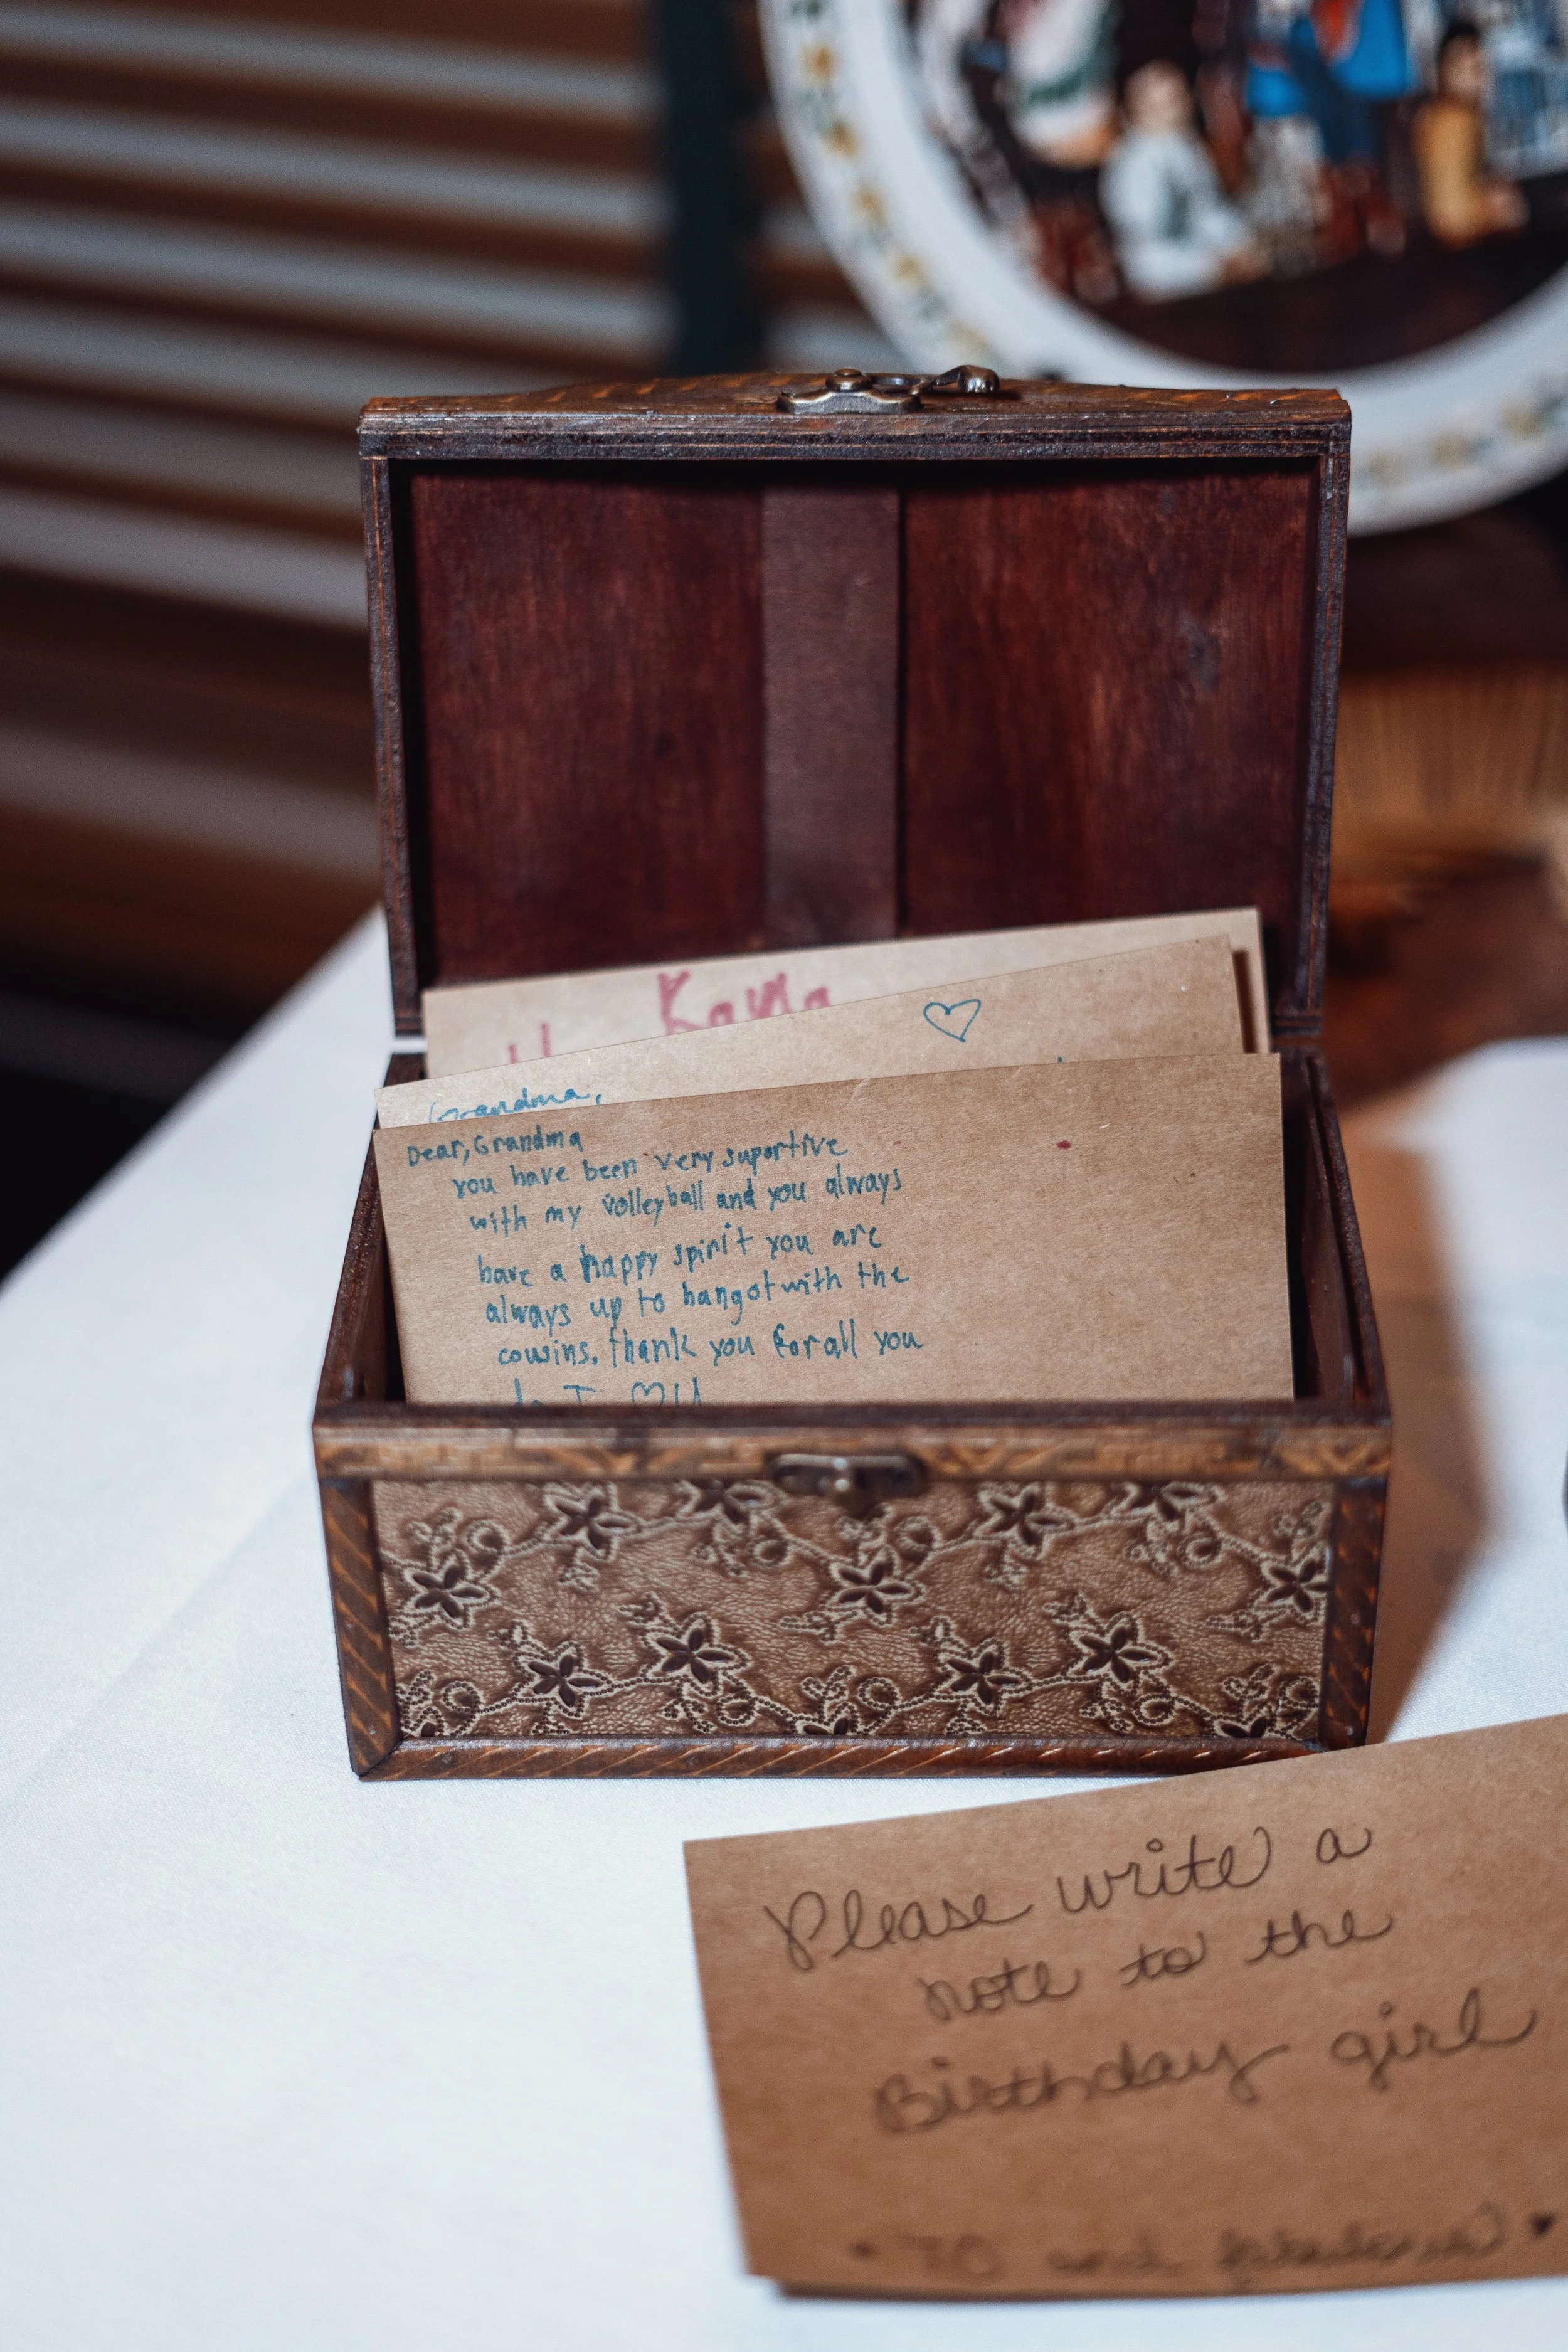 Kayla
Grandma,
Dear, Grandma
you have been very suportive
with my volleyball and you always
have a happy spirit you are
always up to hangot with the
cousins. thank you for all you
do I ♡ U
Please write a
note to the
Birthday girl
70 and fabulous ♥